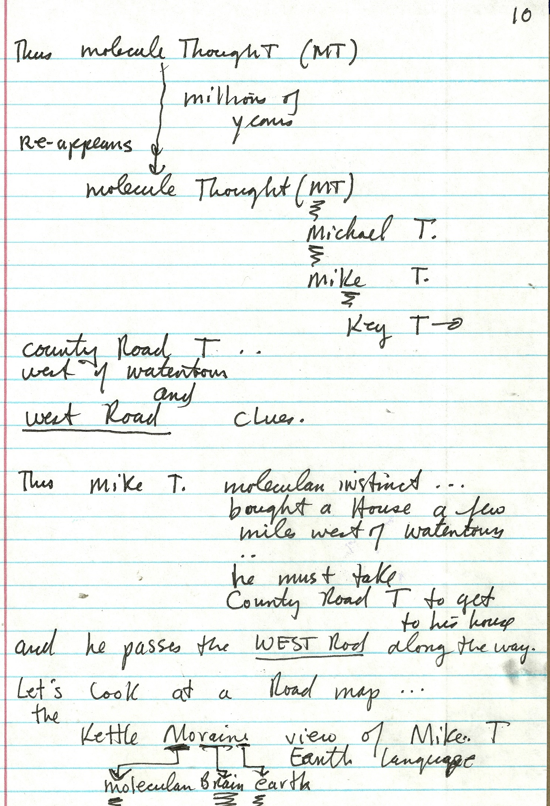 10
Thus molecule Thought (MT)
millions of
years
Re-appears
molecule Thought (MT)
Michael T.
Mike T.
Key T
County Road T ..
west of watertown
and
west Road clues.
Thus Mike T. molecular instinct ...
bought a House a few
miles west of watertown
..
he must take
County Road T to get
to his house
and he passes the WEST Rod along the way.
Let's Look at a Road map ...
the
Kettle Moraine view of Mike T
Earth language
molecular Brain earth